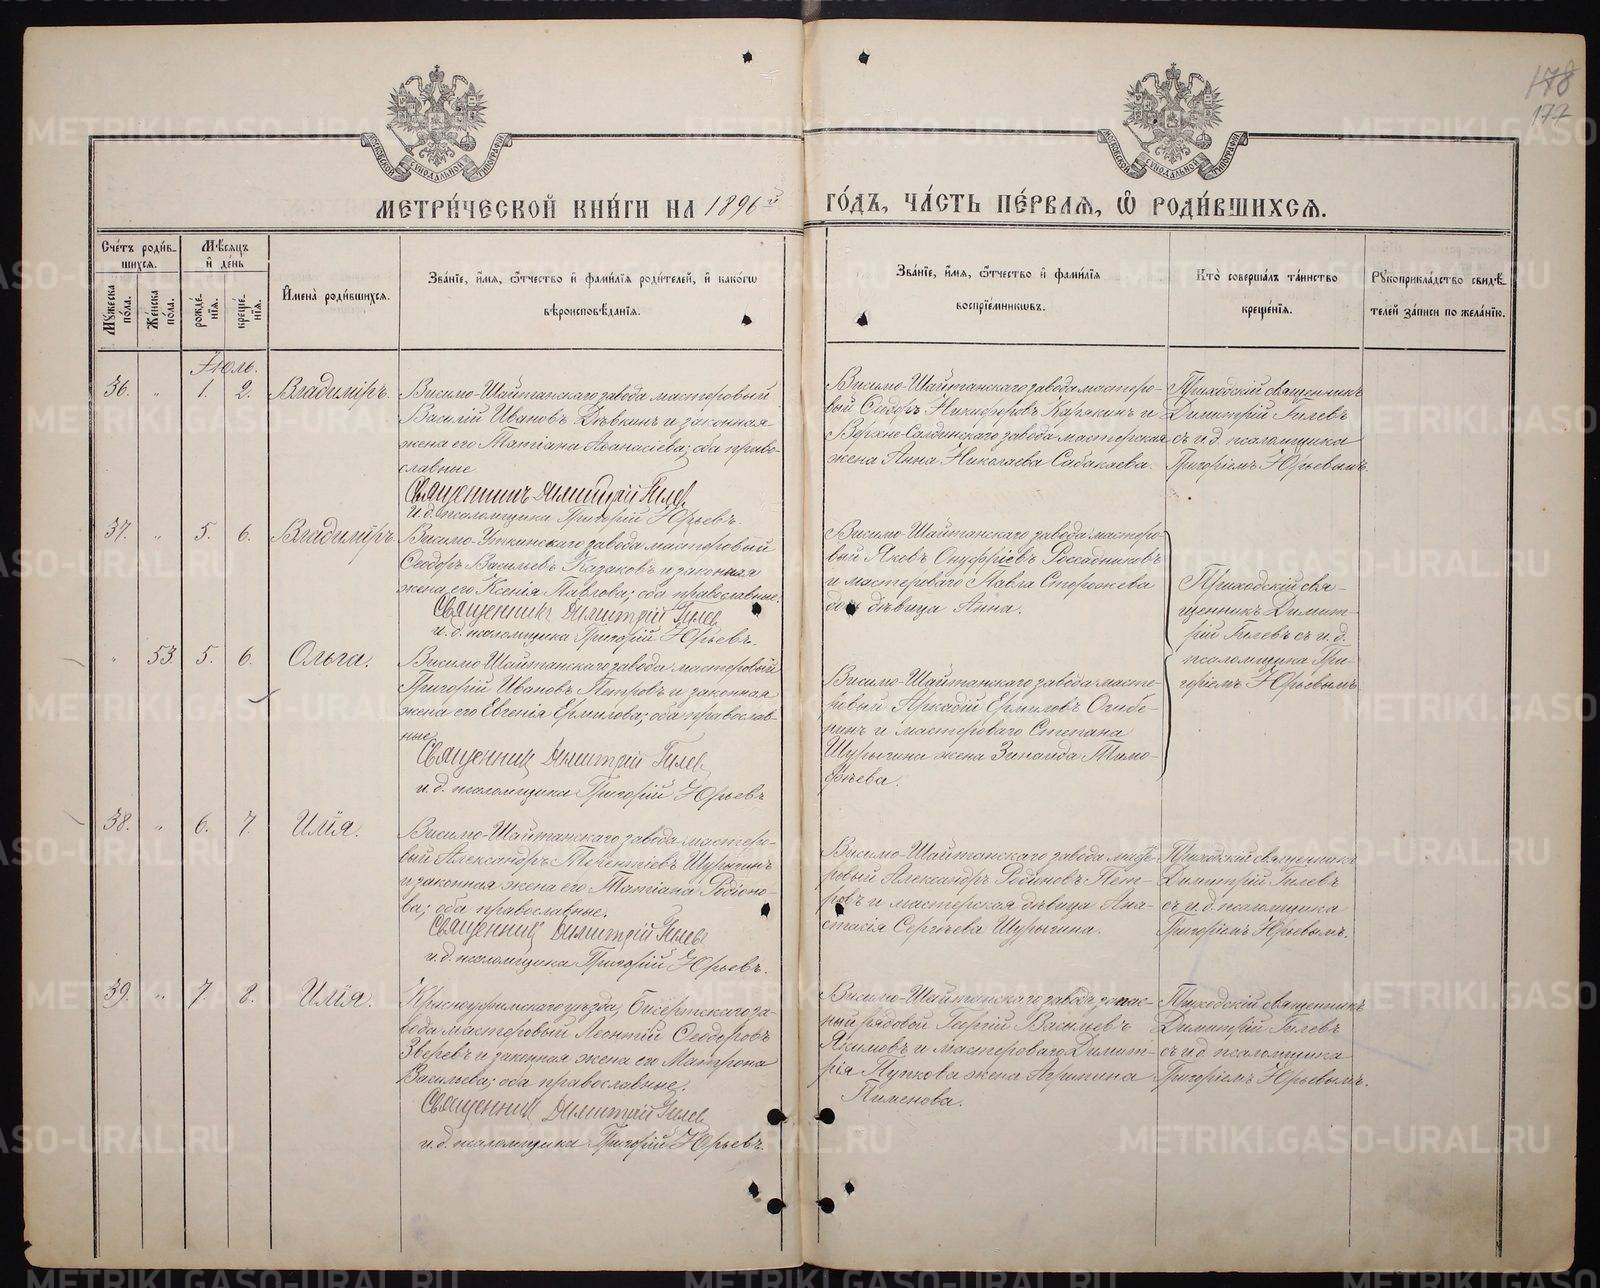 178
172
МОСКОВСКОЙ СѴНОДАЛЬНОЙ ТИПОГРАФІИ
МОСКОВСКОЙ СѴНОДАЛЬНОЙ ТИПОГРАФІИ
МЕТРИ́ЧЕСКОЙ КНИ́ГИ НА 1896й ГО́ДЪ, ЧА́СТЬ ПЕ́РВАѦ, Ѡ҆ РОДИ́ВШИХСѦ.
Сче́тъ роди́в-
шихсѧ.
Мꙋ́жеска по́ла.
Же́нска по́ла.
Мѣ́сѧцъ
и҆ де́нь
рожде́-
нїѧ.
креще́-
нїѧ.
И҆мена̀ роди́вшихсѧ.
Зва́нїе, и҆́мѧ, ѻ҆́тчество и҆ фами́лїѧ роди́телей, и҆ како́гѡ
вѣроисповѣ́данїѧ.
Зва́нїе, и҆́мѧ, ѻ҆́тчество и҆ фами́лїѧ
воспрїе́мникѡвъ.
Кто̀ соверша́лъ та́инство
креще́нїѧ.
Рꙋкоприкла́дство свидѣ́-
телей за́писи по жела́нїю.
Іюль.
36. „ 1. 2. Владиміръ.
Висимо-Шайтанскаго завода мастеровый
Василій Ивановъ Дѣвкинъ и законная
жена его Татіана Аѳанасіева; оба право-
славные
Священникъ Димитрій Гилев
И.д. псаломщика Григорій Юрьевъ.
Висимо-Шайтанскаго завода мастеро-
вый Сидоръ Никифоровъ Карякинъ и
Верхне-Салдинскаго завода мастерская
жена Анна Николаева Сабакаева.
Приходскій священникъ
Димитрій Гилевъ
съ и.д. псаломщика
Григоріемъ Юрьевымъ.
37. „ 5. 6. Владиміръ.
Висимо-Уткинскаго завода мастеровый
Ѳеодоръ Васильевъ Казаковъ и законная
жена его Ксенія Павлова; оба православные.
Священникъ Димитрій Гилев
и.д. псаломщика Григорій Юрьевъ.
Висимо-Шайтанскаго завода мастеро-
вый Яковъ Онуфріевъ Россадниковъ
и мастероваго Павла Сторожева
дѣвица Анна.
Приходскій свя-
щенникъ Димит-
рій Гилевъ съ и.д.
псаломщика Гри-
горіемъ Юрьевымъ
„ 53. 5. 6. Ольга.
Висимо-Шайтанскаго завода мастеровый
Григорій Ивановъ Петровъ и законная
жена его Евгенія Ермилова; оба православ-
ные.
Священник Димитрій Гилев
и.д. псаломщика Григорій Юрьевъ
Висимо-Шайтанскаго завода масте-
ровый Аркадій Ермиловъ Огибе-
нинъ и мастероваго Степана
Шурыгина жена Зинаида Тимо-
фѣева.
38. „ 6. 7. Илія.
Висимо-Шайтанскаго завода мастеро-
вый Александръ Терентіевъ Шурыгинъ
и законная жена его Татіана Родіоно-
ва; оба православные.
Священник Димитрій Гилев
и.д. псаломщика Григорій Юрьевъ.
Висимо-Шайтанскаго завода масте-
ровый Александръ Родіоновъ Пет-
ровъ и мастерская дѣвица Ана-
стасія Сергѣева Шурыгина.
Приходскій священникъ
Димитрій Гилевъ
съ и.д. псаломщика
Григоріемъ Юрьевымъ.
39. „ 7. 8. Илія.
Красноуфимскаго уѣзда, Бисертскаго за-
вода мастеровый Леонтій Ѳеодоровъ
Зверевъ и законная жена его Матрона
Васильева; оба православные.
Священник Димитрій Гилев
и.д. псаломщика Григорій Юрьевъ.
Висимо-Шайтанскаго завода запас-
ный рядовой Георгій Васильевъ
Якимовъ и мастероваго Димит-
рія Пупкова жена Агрипина
Пименова.
Приходскій священникъ
Димитрій Гилевъ
съ и.д. псаломщика
Григоріемъ Юрьевымъ.
METRIKI.GASO-URAL.RU